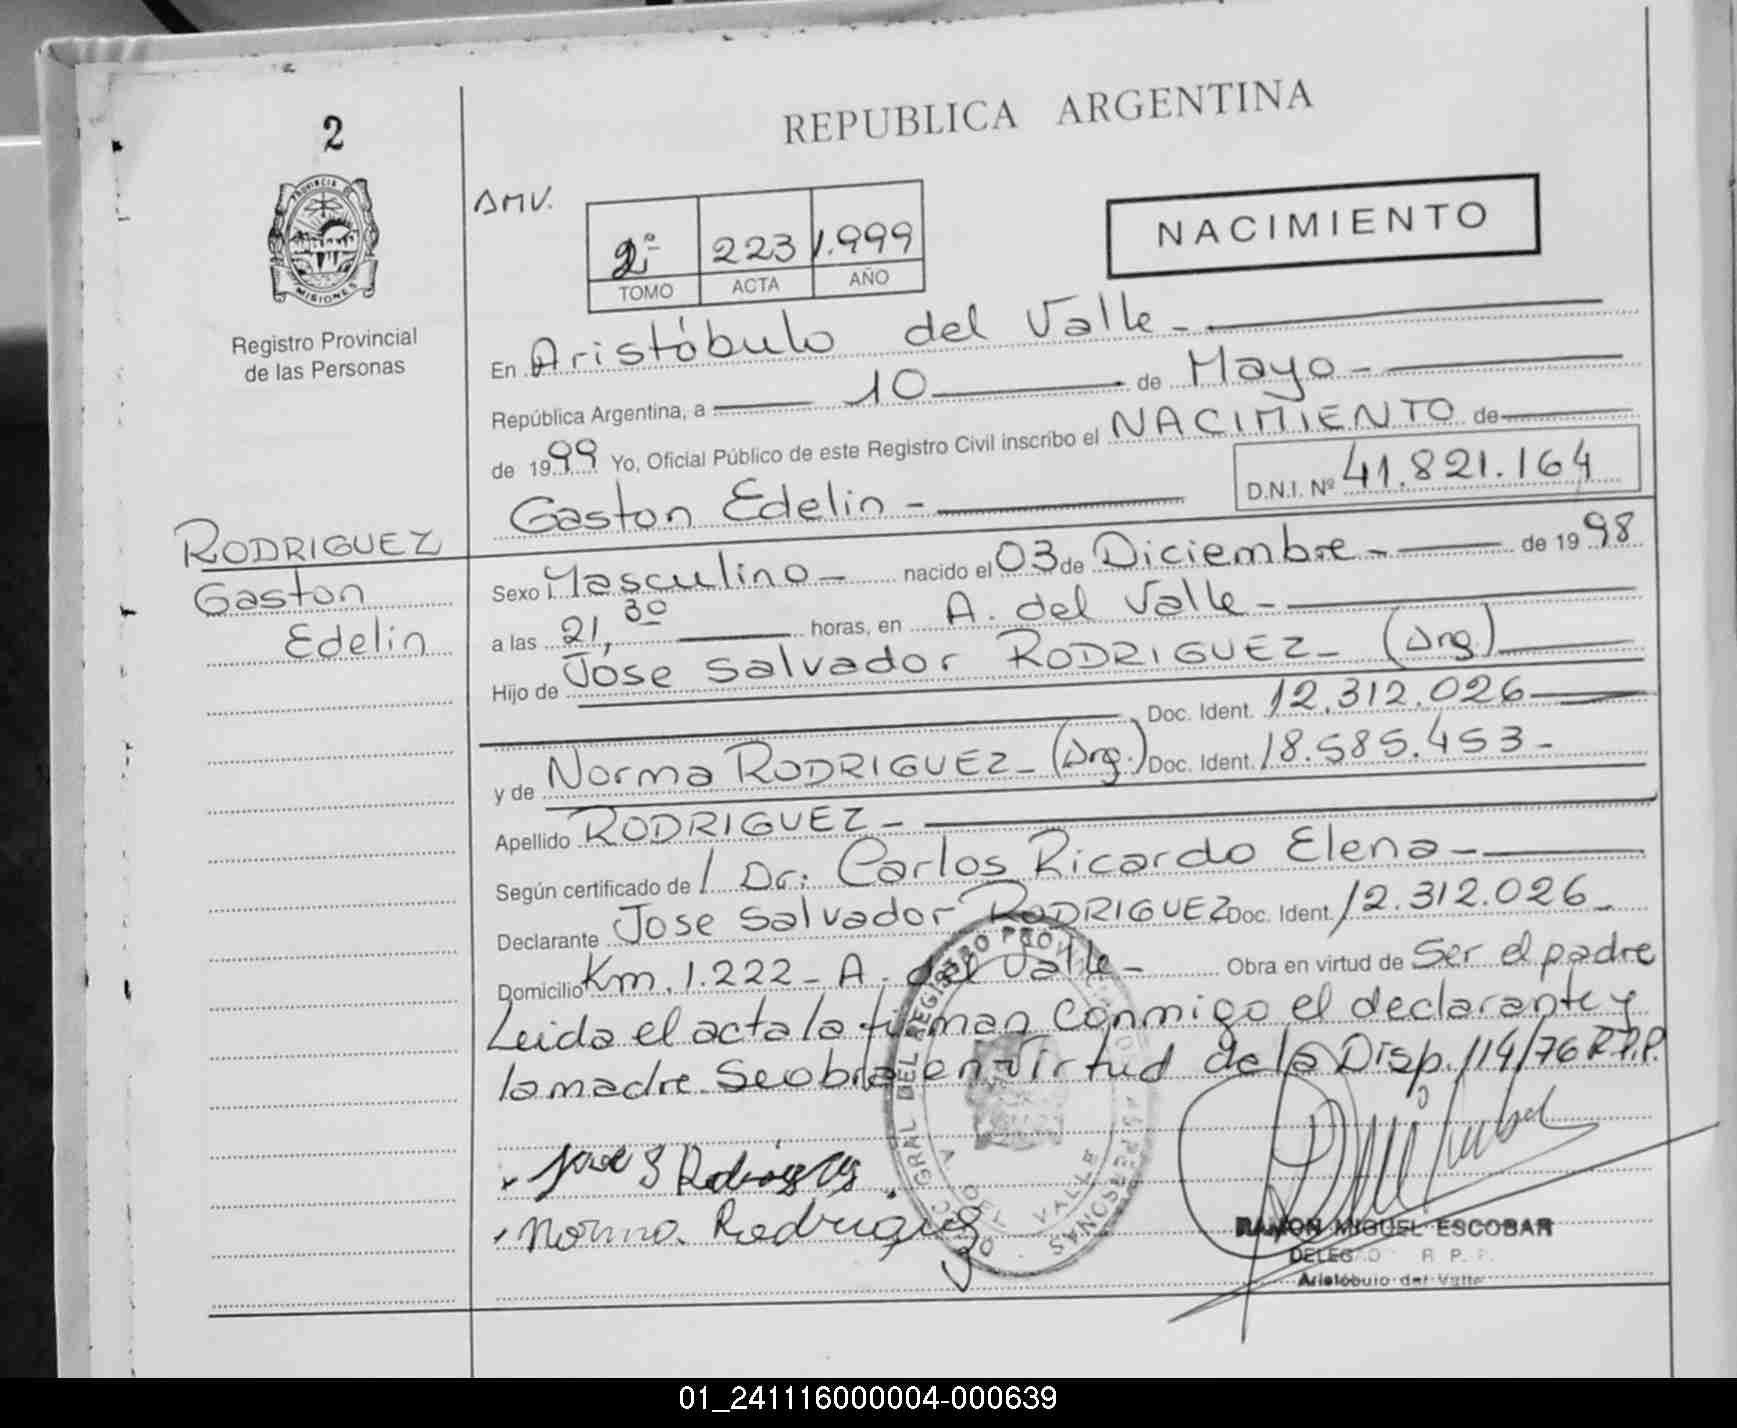 2
REPUBLICA ARGENTINA
PROVINCIA DE
MISIONES
Registro Provincial
de las Personas
AMV.
2º 223 1.999
TOMO ACTA AÑO
NACIMIENTO
En Aristóbulo del Valle -
República Argentina, a 10 de Mayo -
de 1999 Yo, Oficial Público de este Registro Civil inscribo el NACIMIENTO de
Gaston Edelin - D.N.I. Nº 41.821.164
RODRIGUEZ
Gaston
Edelin
Sexo Masculino - nacido el 03 de Diciembre - de 1998
a las 21,30 horas, en A. del Valle -
Hijo de Jose Salvador RODRIGUEZ - (Arg.)
Doc. Ident. 12.312.026
y de Norma RODRIGUEZ - (Arg.) Doc. Ident. 18.585.453 -
Apellido RODRIGUEZ -
Según certificado de / Dr. Carlos Ricardo Elena -
Declarante Jose Salvador RODRIGUEZ Doc. Ident. 12.312.026 -
Domicilio Km. 1.222 - A. del Valle - Obra en virtud de Ser el padre
Leida el acta la firman conmigo el declarante y
la madre. Se obra en virtud de la Disp. 114/76 R.P.P.
Jose S Rodriguez
Norma Rodriguez
DEL REGISTRO PROVINCIAL DE LAS PERSONAS
DEL VALLE
RAMON MIGUEL ESCOBAR
DELEGADO R. P. P.
Aristóbulo del Valle
01_241116000004-000639